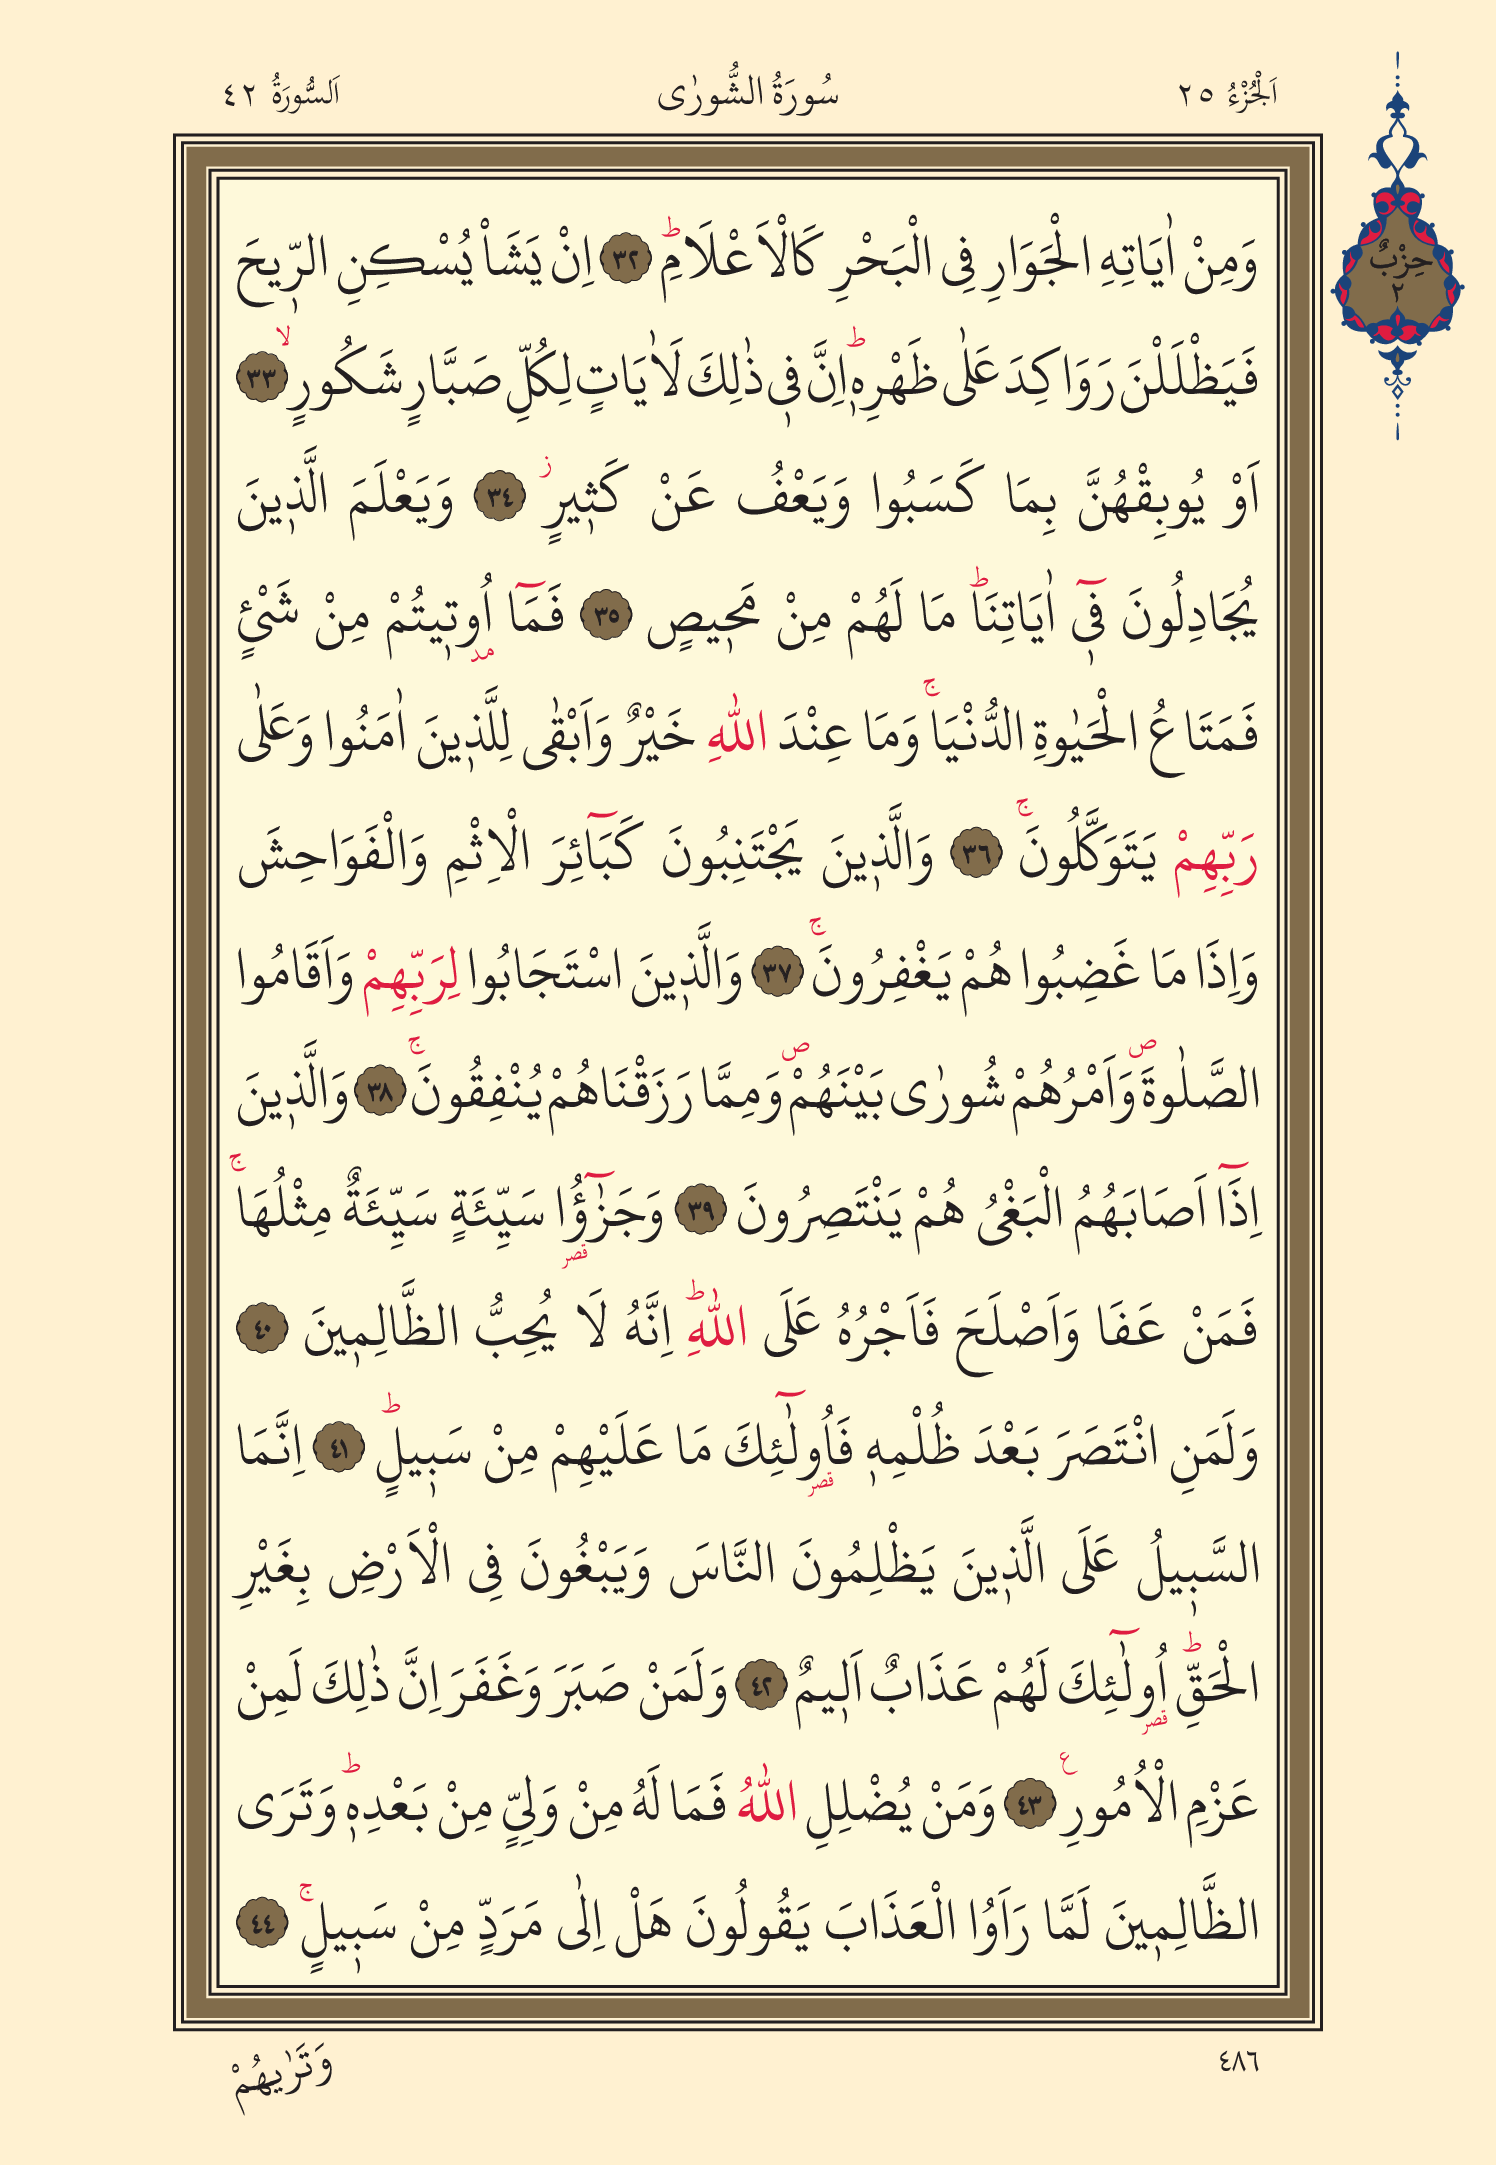 اَلْجُزْءُ ٢٥ سُورَةُ الشُّورٰى اَلسُّورَةُ ٤٢
حِزْبٌ
٢
وَمِنْ اٰيَاتِهِ الْجَوَارِ فِى الْبَحْرِ كَالْاَعْلَامِۜ ﴿٣٢﴾ اِنْ يَشَاْ يُسْكِنِ الرّ۪يحَ
فَيَظْلَلْنَ رَوَاكِدَ عَلٰى ظَهْرِه۪ۜ اِنَّ ف۪ى ذٰلِكَ لَاٰيَاتٍ لِكُلِّ صَبَّارٍ شَكُورٍۙ ﴿٣٣﴾
اَوْ يُوبِقْهُنَّ بِمَا كَسَبُوا وَيَعْفُ عَنْ كَث۪يرٍۘ ﴿٣٤﴾ وَيَعْلَمَ الَّذ۪ينَ
يُجَادِلُونَ ف۪ٓى اٰيَاتِنَاۜ مَا لَهُمْ مِنْ مَح۪يصٍ ﴿٣٥﴾ فَمَٓا اُو۫ت۪يتُمْ مِنْ شَىْءٍ
فَمَتَاعُ الْحَيٰوةِ الدُّنْيَاۚ وَمَا عِنْدَ اللّٰهِ خَيْرٌ وَاَبْقٰى لِلَّذ۪ينَ اٰمَنُوا وَعَلٰى
رَبِّهِمْ يَتَوَكَّلُونَۚ ﴿٣٦﴾ وَالَّذ۪ينَ يَجْتَنِبُونَ كَبَٓائِرَ الْاِثْمِ وَالْفَوَاحِشَ
وَاِذَا مَا غَضِبُوا هُمْ يَغْفِرُونَۚ ﴿٣٧﴾ وَالَّذ۪ينَ اسْتَجَابُوا لِرَبِّهِمْ وَاَقَامُوا
الصَّلٰوةَۖ وَاَمْرُهُمْ شُورٰى بَيْنَهُمْۖ وَمِمَّا رَزَقْنَاهُمْ يُنْفِقُونَۚ ﴿٣٨﴾ وَالَّذ۪ينَ
اِذَٓا اَصَابَهُمُ الْبَغْىُ هُمْ يَنْتَصِرُونَ ﴿٣٩﴾ وَجَزٰٓؤُ۬ا سَيِّئَةٍ سَيِّئَةٌ مِثْلُهَاۚ
فَمَنْ عَفَا وَاَصْلَحَ فَاَجْرُهُ عَلَى اللّٰهِۜ اِنَّهُ لَا يُحِبُّ الظَّالِم۪ينَ ﴿٤٠﴾
وَلَمَنِ انْتَصَرَ بَعْدَ ظُلْمِه۪ فَاُو۬لٰٓئِكَ مَا عَلَيْهِمْ مِنْ سَب۪يلٍۜ ﴿٤١﴾ اِنَّمَا
السَّب۪يلُ عَلَى الَّذ۪ينَ يَظْلِمُونَ النَّاسَ وَيَبْغُونَ فِى الْاَرْضِ بِغَيْرِ
الْحَقِّۜ اُو۬لٰٓئِكَ لَهُمْ عَذَابٌ اَل۪يمٌ ﴿٤٢﴾ وَلَمَنْ صَبَرَ وَغَفَرَ اِنَّ ذٰلِكَ لَمِنْ
عَزْمِ الْاُمُورِ۟ ﴿٤٣﴾ وَمَنْ يُضْلِلِ اللّٰهُ فَمَا لَهُ مِنْ وَلِىٍّ مِنْ بَعْدِه۪ۜ وَتَرَى
الظَّالِم۪ينَ لَمَّا رَاَوُا الْعَذَابَ يَقُولُونَ هَلْ اِلٰى مَرَدٍّ مِنْ سَب۪يلٍۚ ﴿٤٤﴾
٤٨٦ وَتَرٰيهُمْ